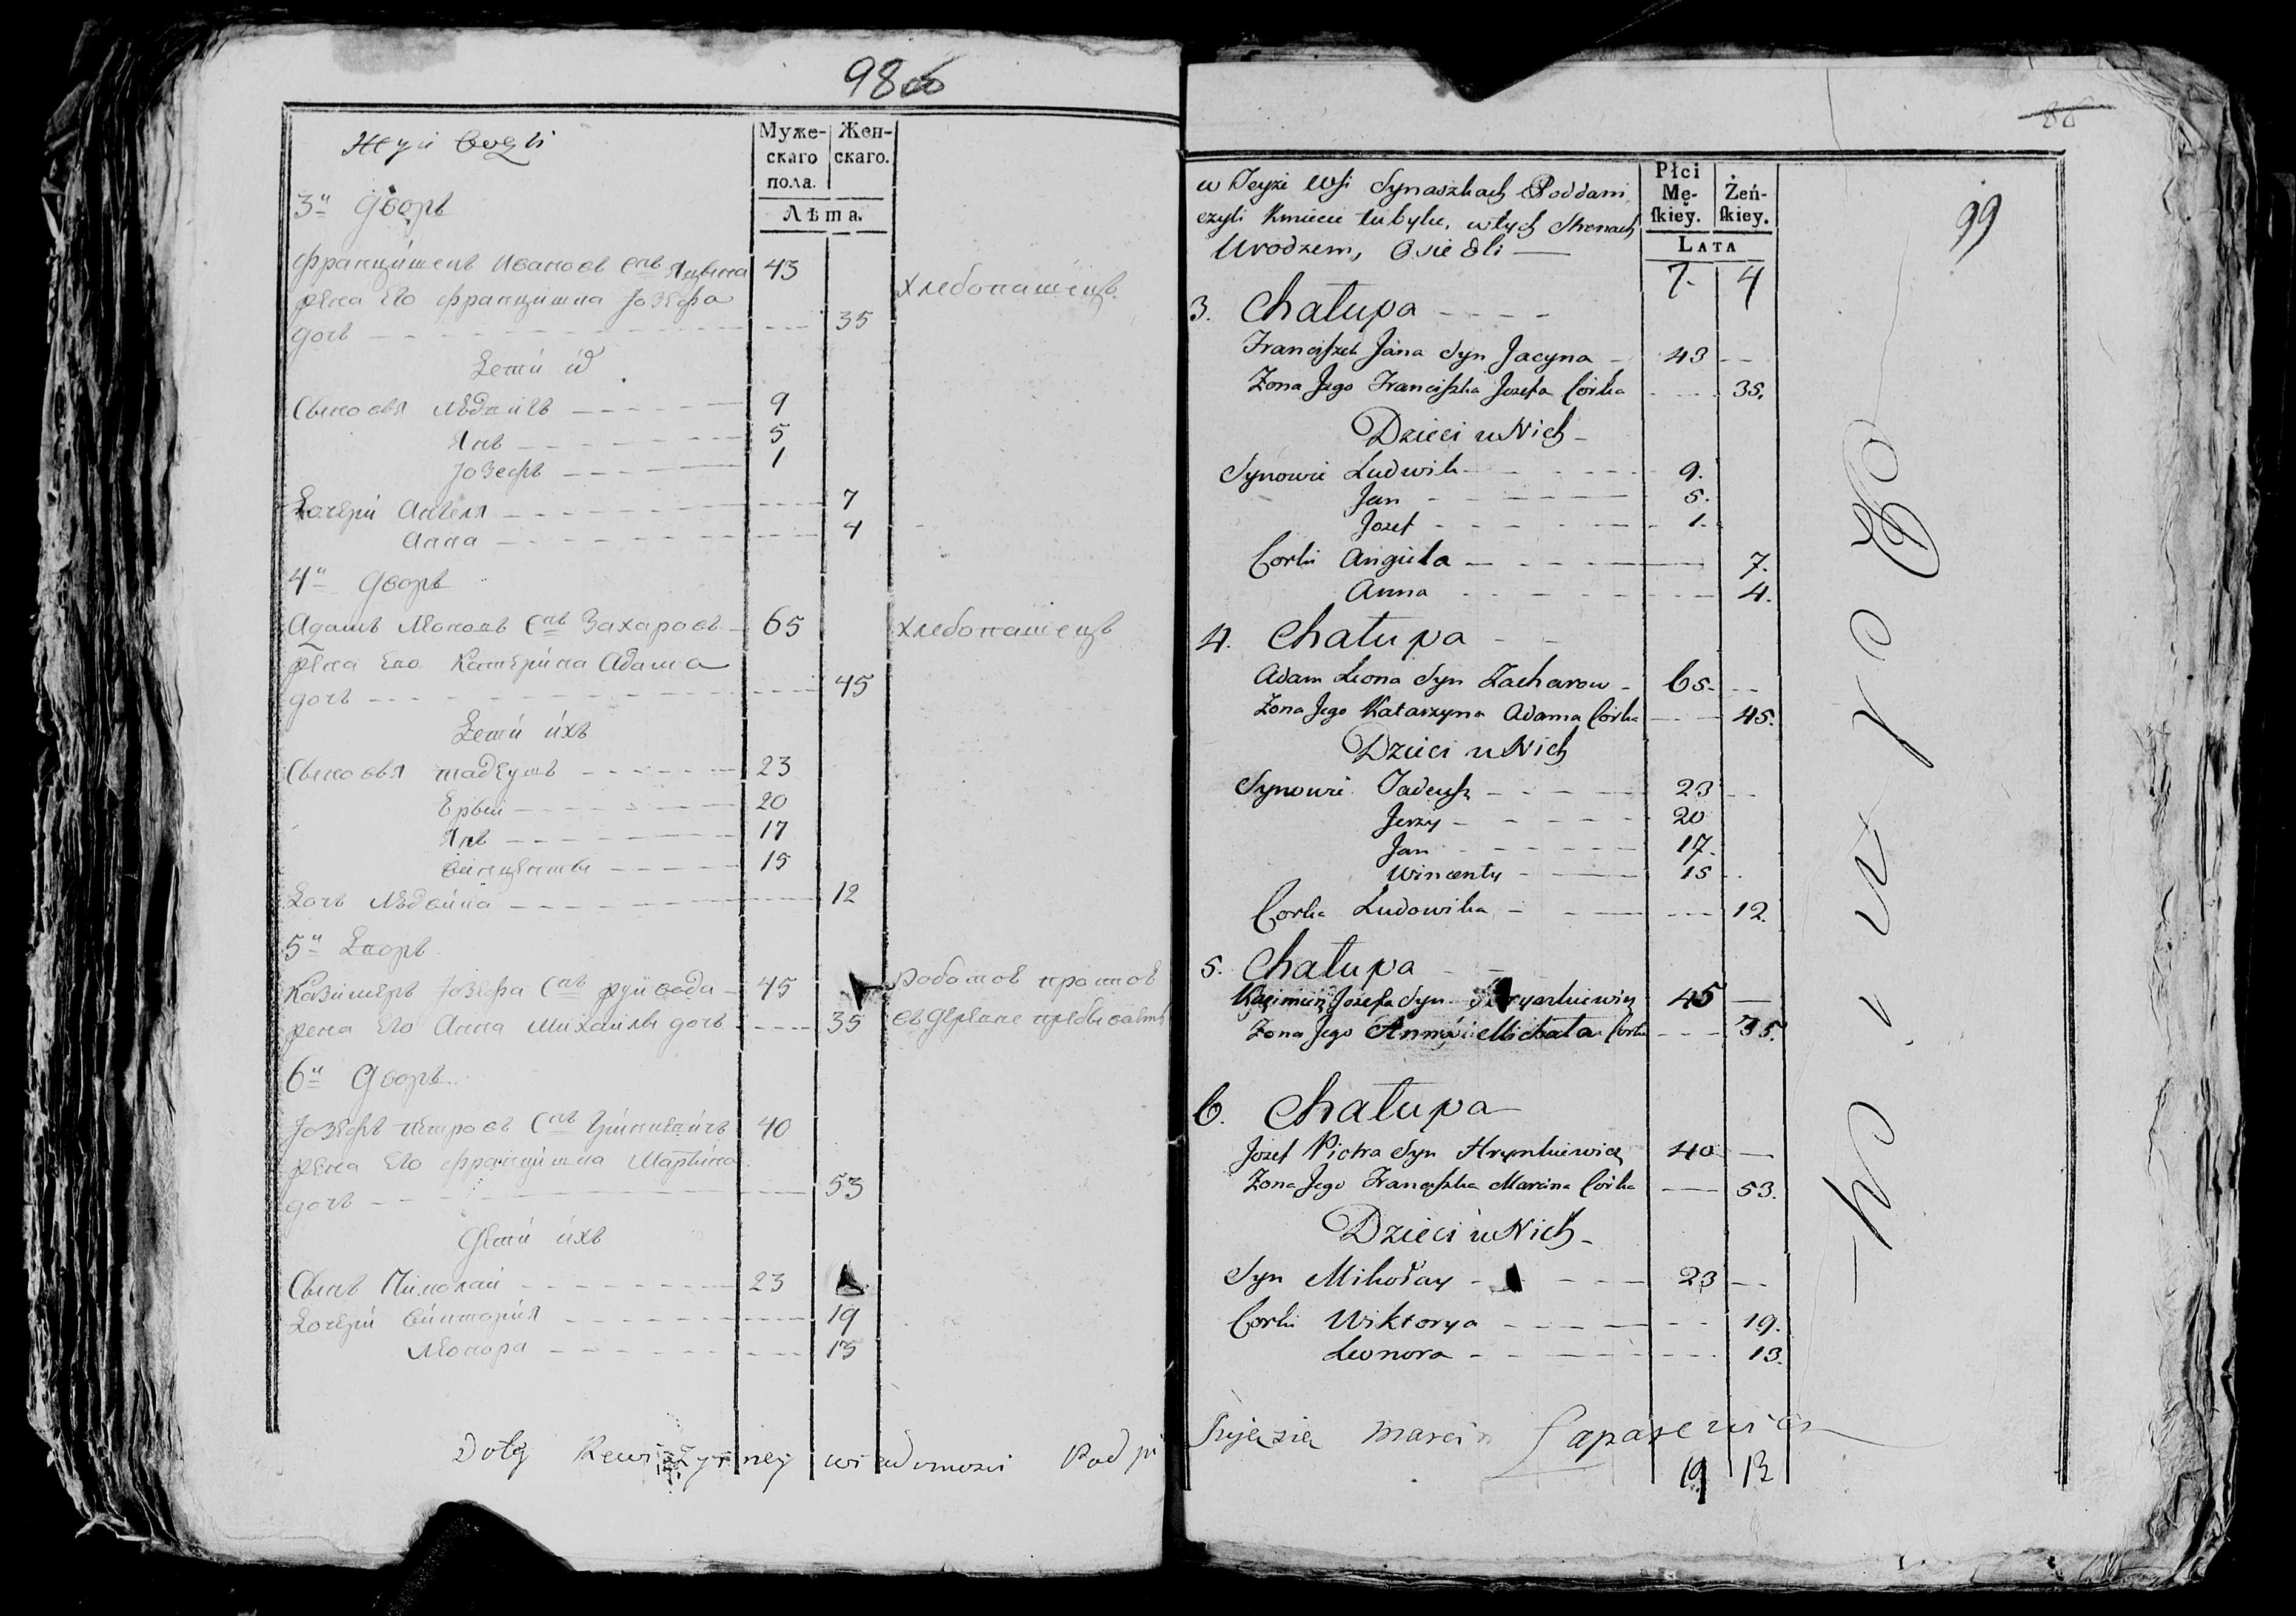 98об
Муже-
скаго
пола.
Жен-
скаго.
Лѣта.
3й Дворъ
Францишекъ Ивановъ снъ Яцына 43
жена Его Францишка Јозефа
дочь 35
хлебопашецъ
Сыновья Людвикъ 9
Янъ 5
Јозефъ 1
Дочери Ангеля 7
Анна 4
4й Дворъ
Адамъ Леоновъ снъ Захаровъ 65 хлебопашецъ
жена Его Катерина Адама
дочь 45
Дети ихъ
Сыновья Тадеушъ 23
Ержи 20
Янъ 17
Винценты 15
Дочь 12
5й Дворъ
Казимеръ Јозефа снъ 45
жена Его Анна Михайлы дочь 35
6й Дворъ
Јозефъ Петровъ снъ Гринкевичъ 40
жена Его Францишка Марцина
дочь 53
Дети ихъ
Сынъ Миколай 23
Дочери Виктория 19
Леонора 13
Do tey Rewizyiney wiadomosci Podpi
86
99
w Teyże Wsi Synaszkach Poddani
czyli Kmiecie tubylce, w tych Stronach
Urodzeni, Osiedli —
Płci
Mę-
ſkiey.
Żeń-
ſkiey.
LATA
7. 4
3. Chałupa
Franciszek Jana Syn Jacyna 43
Zona Jego Franciszka Jozefa Corka 35.
Dzieci u Nich
Synowie Ludwik 9.
Jan 5.
Jozef 1.
Corki Angiela 7.
Anna 4.
4. Chałupa
Adam Leona Syn Zacharow 65.
Zona Jego Katarzyna Adama Corka 45.
Dzieci u Nich
Synowie Tadeusz 23
Jerzy 20
Jan 17.
Wincenty 15
Corka Ludowika 12.
5. Chałupa
Kazimierz Jozefa Syn 45
Zona Jego Anna Michała Corka 35.
6. Chałupa
Jozef Piotra Syn Hrynkiewicz 40
Zona Jego Franciszka Marcina Corka 53.
Dzieci u Nich
Syn Mikołay 23
Corki Wiktorya 19.
Leonora 13.
Marcin Łapasewicz
19 13